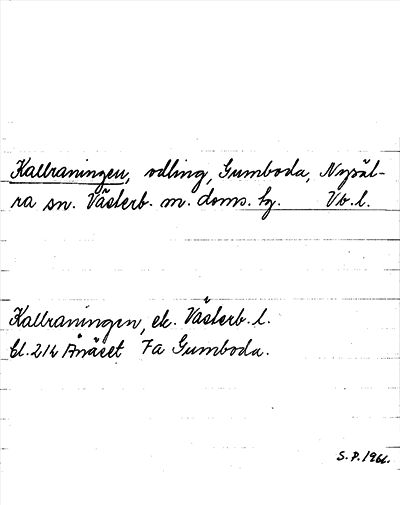 Kallraningen, odling, Gumboda, Nysät-
ra sn. Västerb. m. doms. hg. Vb. l.
Kallraningen, ek. Västerb. l.
bl. 214 Ånäset Fa Gumboda.
S. P. 1966.